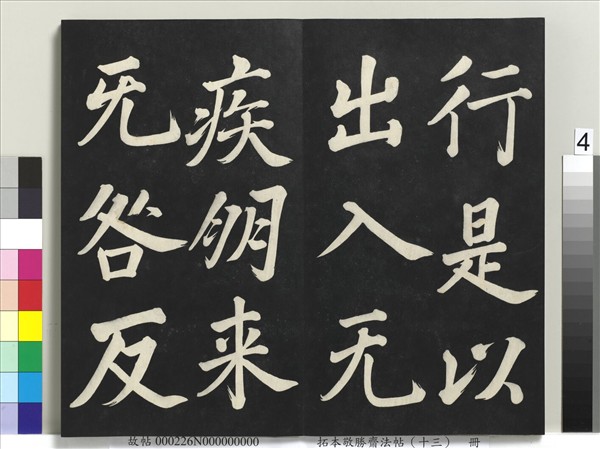 行是以
出入无
疾朋来
无咎反
4
故帖 000226N000000000 拓本敬勝齋法帖（十三） 冊